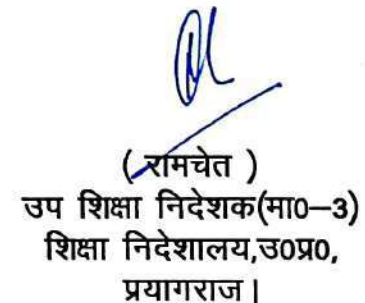 ( रामचेत )
उप शिक्षा निदेशक(मा0—3)
शिक्षा निदेशालय,उ0प्र0,
प्रयागराज।